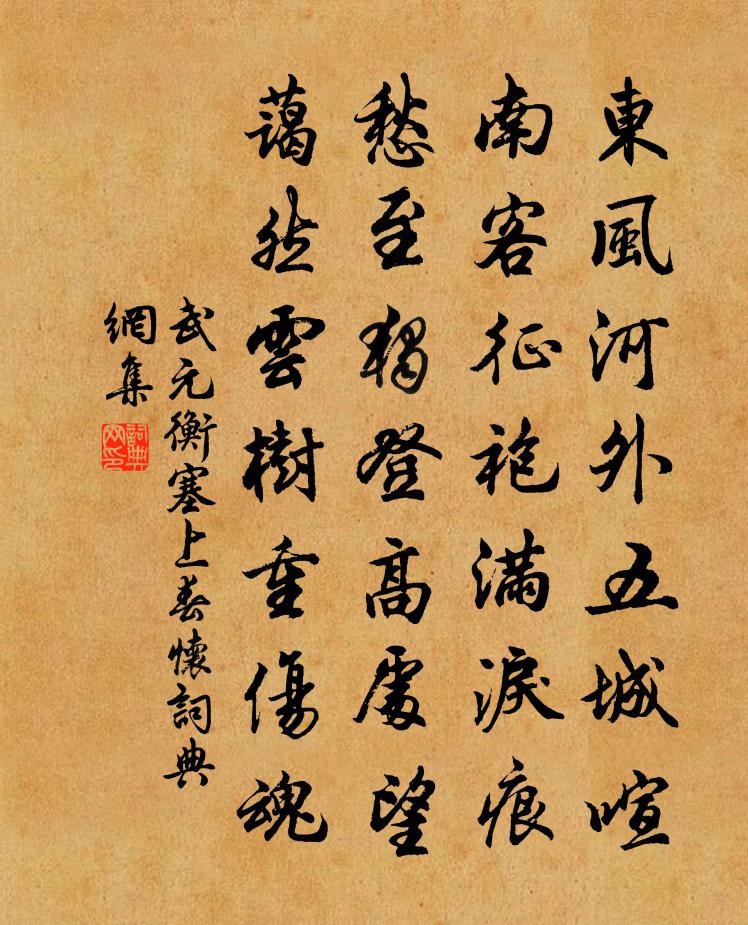 東風河外五城喧
南客征袍滿淚痕
愁至獨登高處望
藹然雲樹重傷魂
武元衡塞上春懷詞典
網集
詞典
网印